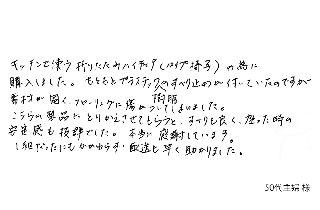 キッチンで使う折りたたみハイチェア(パイプ椅子)の為に
購入しました。もともとプラスチックのすべり止めが付いていたのですが
樹脂
素材が固く、フローリングに傷がついてしまいました。
こちらの製品にとりかえさせてもらうと、すべりも良く、座った時の
安定感も抜群でした。本当に感謝しています。
1組だったにもかかわらず、配送も早く助かりました。
50代主婦 様